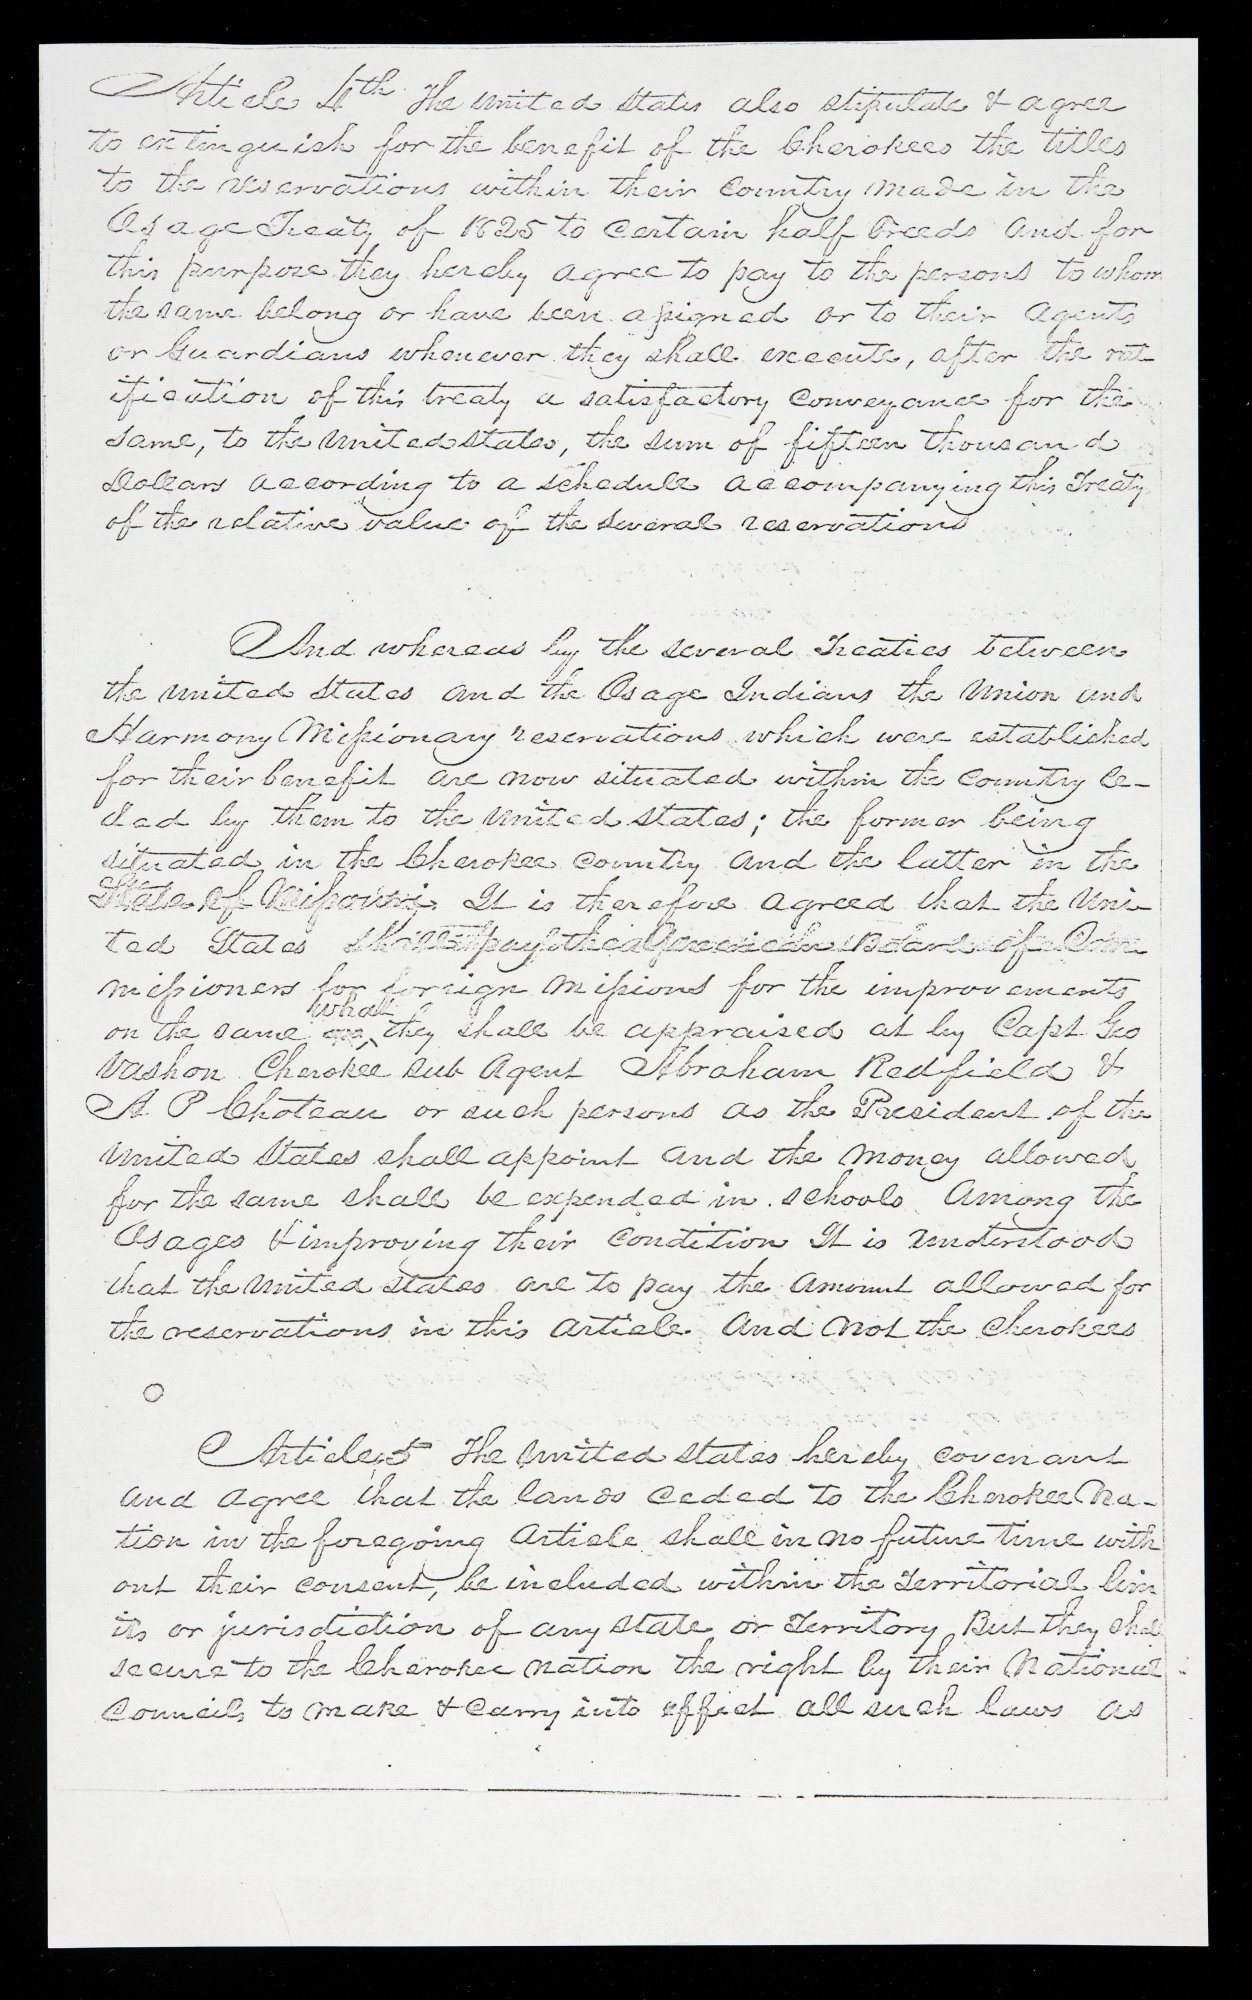 Article 4th The United States also stipulate & agree
to extinguish for the benefit of the Cherokees the titles
to the reservations within their Country made in the
Osage Treaty of 1825 to certain half breeds and for
this purpose they hereby agree to pay to the persons to whom
the same belong or have been assigned or to their Agents
or Guardians whenever they shall execute, after the rat
ification of this treaty a satisfactory Conveyance for the
same, to the United States, the sum of fifteen thousand
Dollars according to a schedule accompanying this Treaty
of the relative value of the several reservations
And whereas by the several Treaties between
the United States and the Osage Indians the Union and
Harmony Missionary reservations which were established
for their benefit are now situated within the Country ce-
ded by them to the United States; the former being
situated in the Cherokee Country and the latter in the
State of Missouri. It is therefore agreed that the Uni-
ted States shall pay the American Board of Com
missioners for foreign Missions for the improvements
on the same what they shall be appraised at by Capt Geo
Vashon Cherokee sub Agent Abraham Redfield &
A P Choteau or such persons as the President of the
United States shall appoint and the Money allowed
for the same shall be expended in schools Among the
Osages & improving their Condition It is Understood
that the United States are to pay the Amount allowed for
the reservations in this Article And Not the Cherokees
Article 5 The United States hereby Covenant
and agree that the lands ceded to the Cherokee Na-
tion in the foregoing Article shall in no future time with
out their consent, be included within the Territorial lim
its or jurisdiction of any State or Territory But they shall
secure to the Cherokee nation the right by their National
Councils to make & Carry into effect all such laws as